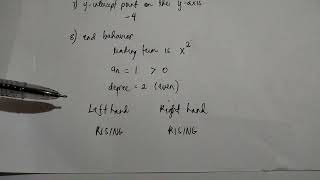 2) y-intercept point on the y-axis
-4
3) end behavior
leading term is x²
an = 1 > 0
degree = 2 (even)
Left hand Right hand
RISING RISING